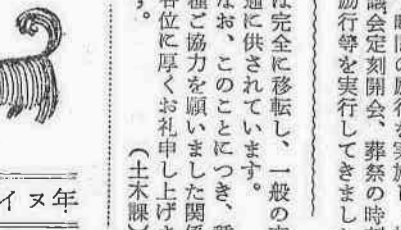 の励行を実施し、
議会定刻開会、葬祭の時刻
励行等を実行してきまし
は完全に移転し、一般の交
通に供されています。
なお、このことにつき、種
種ご協力を願いました関係
各位に厚くお礼申し上げま
す。
(土木課)
イヌ年